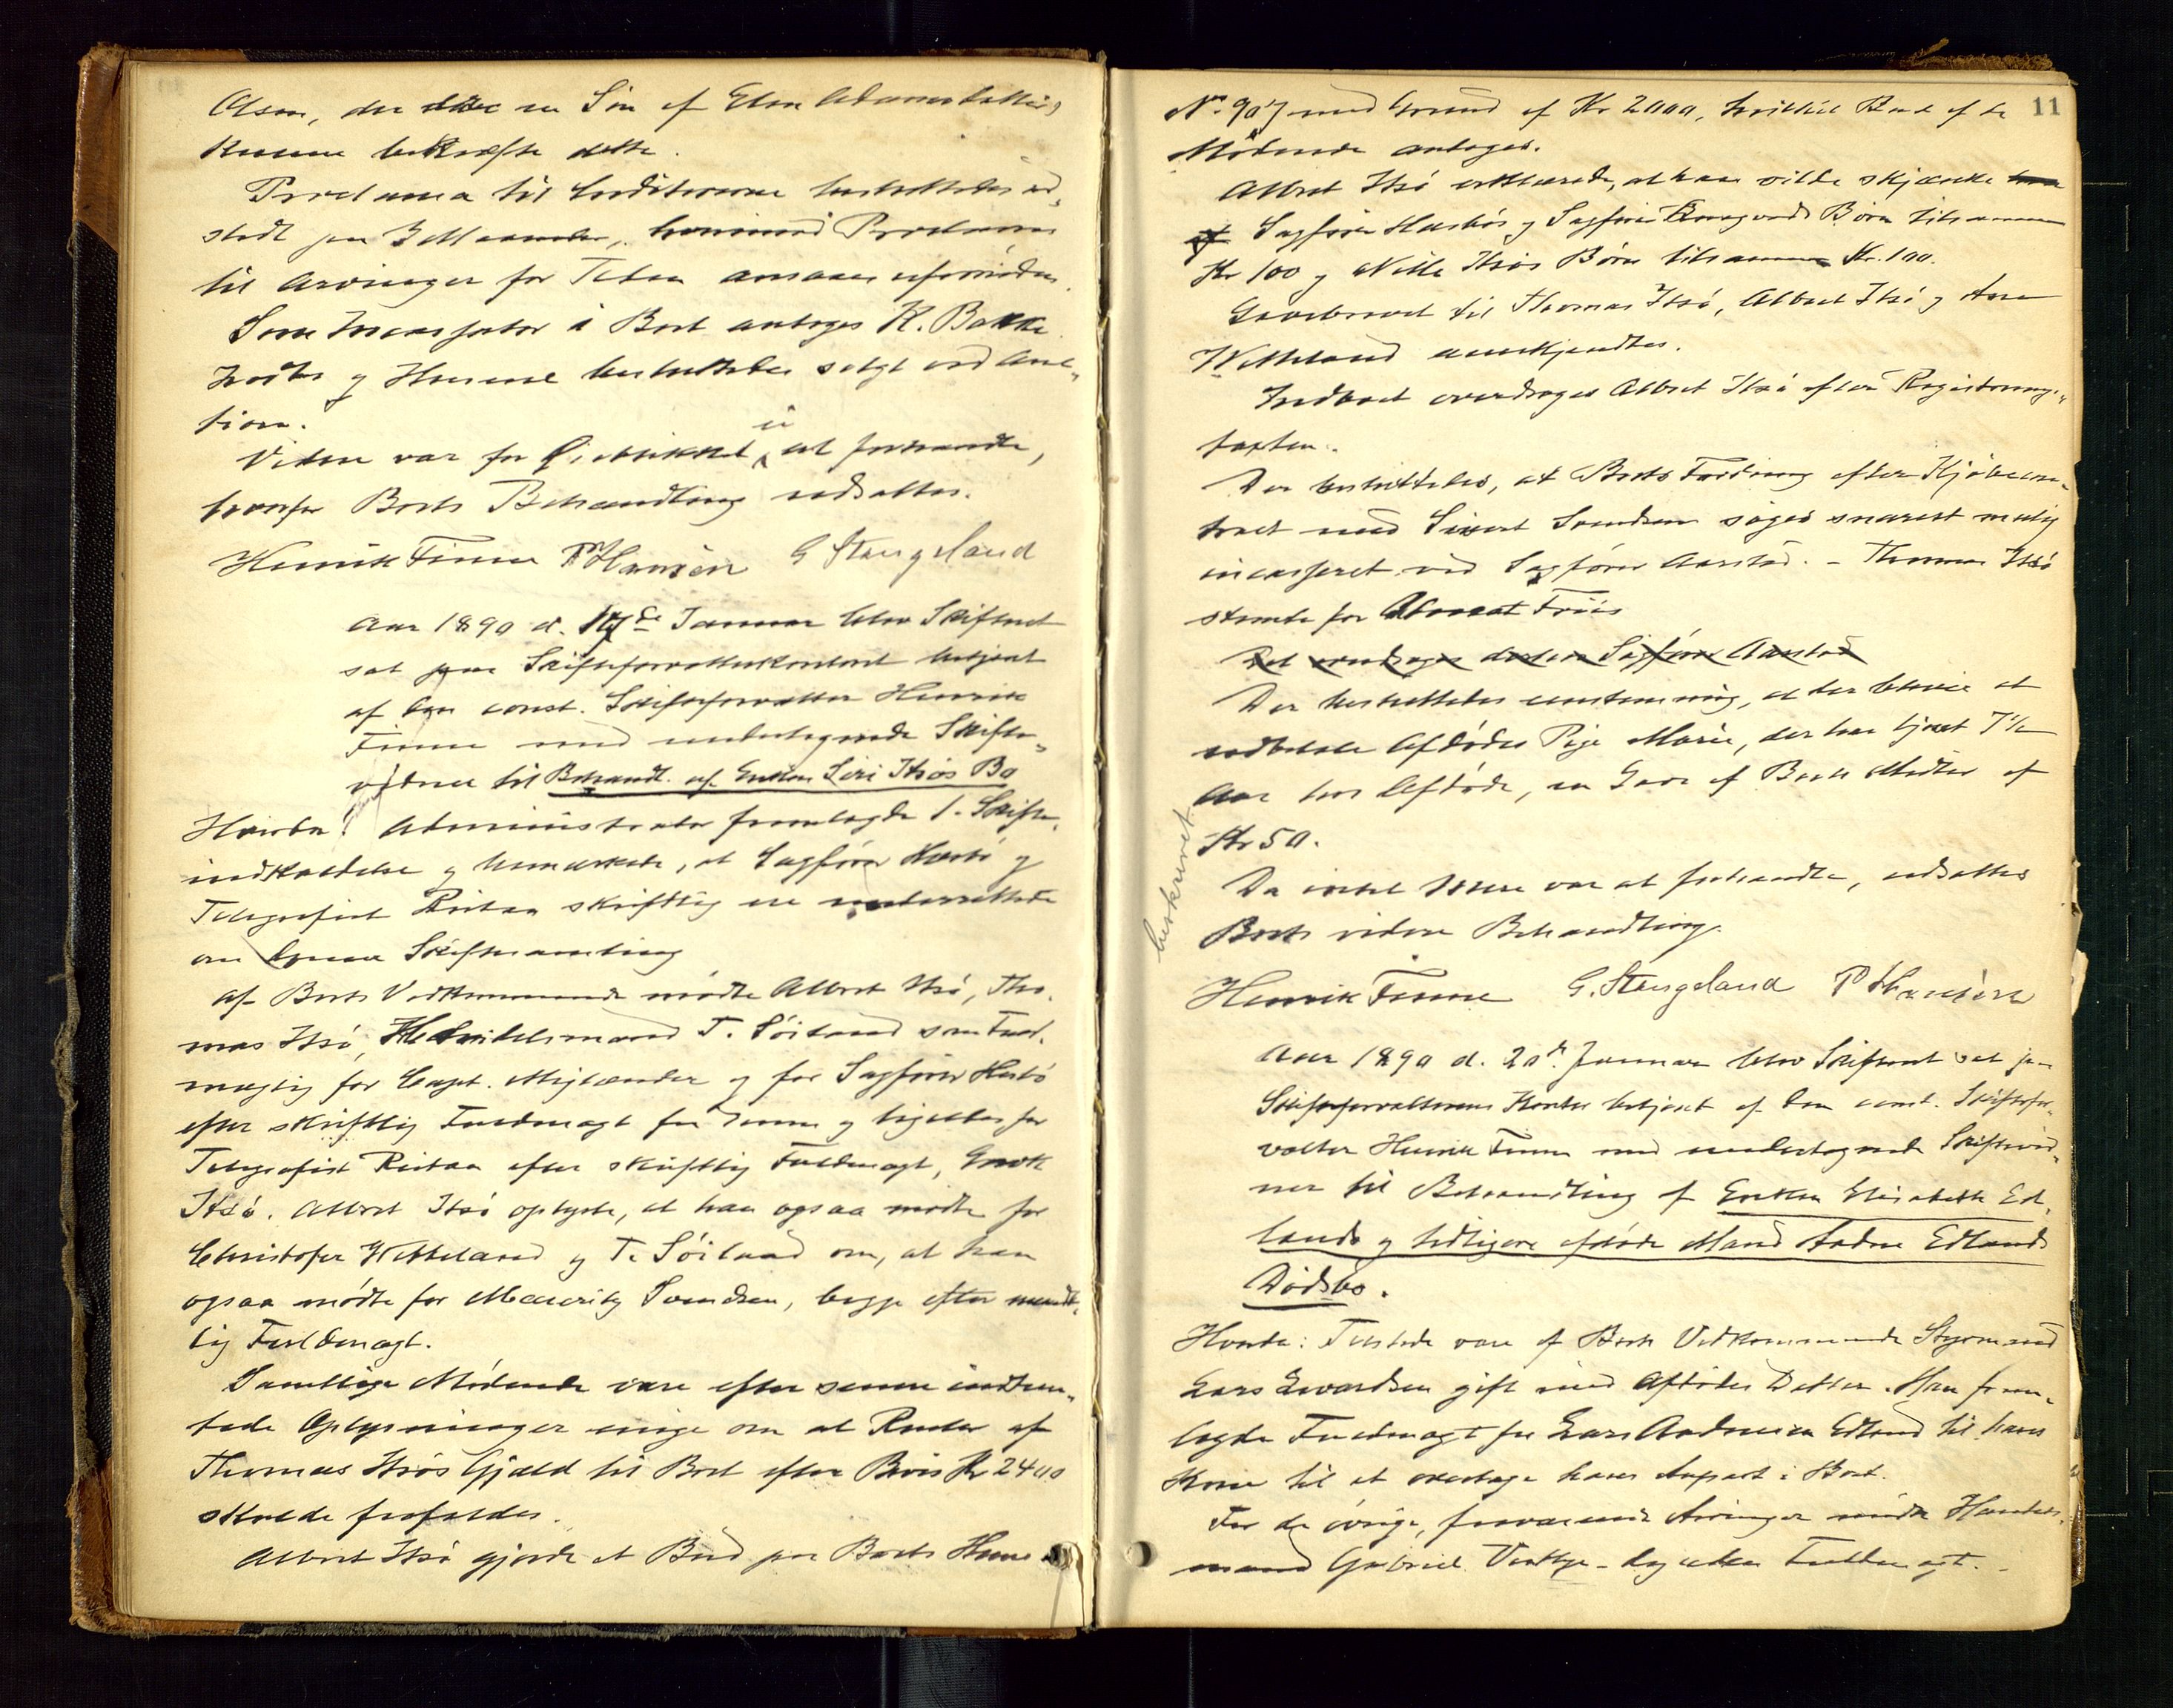 Olsen, der er en Søn af Elen Adamsdatter,
kunne bekræfte dette.
Proclama til Creditorerne besluttedes ud-
stedt paa 3 Maaneder, hvorimod Proclama
til Arvinger for Tiden ansaaes ufornødent.
Som Incassator i Boet antoges K. Bakke.
Indbo og Husene besluttedes solgt ved Auc-
tion.
Videre var for Øieblikket ei at forhandle,
hvorfor Boets Behandling udsattes.
Henrik Finne P Hansen G Stangeland
Aar 1890 d. 17de Januar blev Skifteret
sat paa Skifteforvalterkontoret betjent
af den const. Skifteforvalter Henrik
Finne med undertegnede Skifte-
vidner til Behandl. af Enken Siri Tksøs Bo
Hvorda: Administrator fremlagde 1. Skifte-
indkaldelse og bemærkede, at Sagfører Hærbø og
Telegrafist Reitan skriftlig ere underrettede
om denne Skiftesamling
Af Boets Vedkommende mødte Albret Itsø, Tho-
mas Itsø, Handelsmand T. Söiland som Fuld-
mægtig for Capt. Meylænder og for Sagfører Hærbø
efter skriftlig Fuldmagt fra denne og ligeledes for
Telegrafist Reitan efter skriftlig Fuldmagt, Enok
Itsø. Albret Itsø oplyste, at han ogsaa mødte for
Christofer Wetteland og T. Söiland om, at han
ogsaa mødte for Mauritz Svendsen, begge efter mundt-
lig Fuldmagt.
Samtlige Mødende vare efter senere indhen-
tede Oplysninger enige om at Renter af
Thomas Itsøs Gjæld til Boet efter Bevis Kr 2400
skulde frafaldes.
Albret Itsø gjorde et Bud paa Boets Huus
11
No 907 med Grund af Kr 2000, hvilket Bud af de
Mødende antoges.
Albret Itsø erklærede, at han vilde skjænke
Sagfører Hærbøs og Sagfører Børn tilsammen
Kr 100 og Nille Itsøs Børn tilsammen Kr. 100.
Gavebrevet til Thomas Itsø, Albret Itsø og Anne
Wetteland anerkjendtes.
Indboet overdroges Albret Itsø efter Registrerings-
taxten.
Der besluttedes, at Boets Fordring efter Kjøbecon-
tract med Sivert Svendsen søges snarest mulig
incasseret ved Sagfører Aarstad. – Thomas Itsø
stemte for Advocat Friis
Det overdroges derfor Sagfører Aarstad
Der besluttedes enstemmig, at der bliver at
udbetale Afdødes Pige Marie, der har tjent 7½
Aar hos Afdøde, en Gave af Boets Midler af
Kr 50.
Da intet videre var at forhandle, udsattes
Boets videre Behandling.
beskrevet
Henrik Finne G. Stangeland P Hansen
Aar 1890 d. 20de Januar blev Skifteret sat paa
Skifteforvalterens Kontor betjent af den const. Skiftefor-
valter Henrik Finne med undertegnede Skiftevid-
ner til Behandling af Enken Elisabeth Ed-
lands og tidligere afdøde Mand Aadne Edlands
Dødsbo.
Hvorda: Tilstede vare af Boets Vedkommende Styrmand
Lars Edvardsen gift med Afdødes Datter. Han frem-
lagde Fuldmagt fra Lars Aadnesen Edland til hans
Kone til at overtage hans Anpart i Boet.
For de øvrige, fraværende Arvinger mødte Handels-
mand Gabriel – dog uden Fuldmagt. –